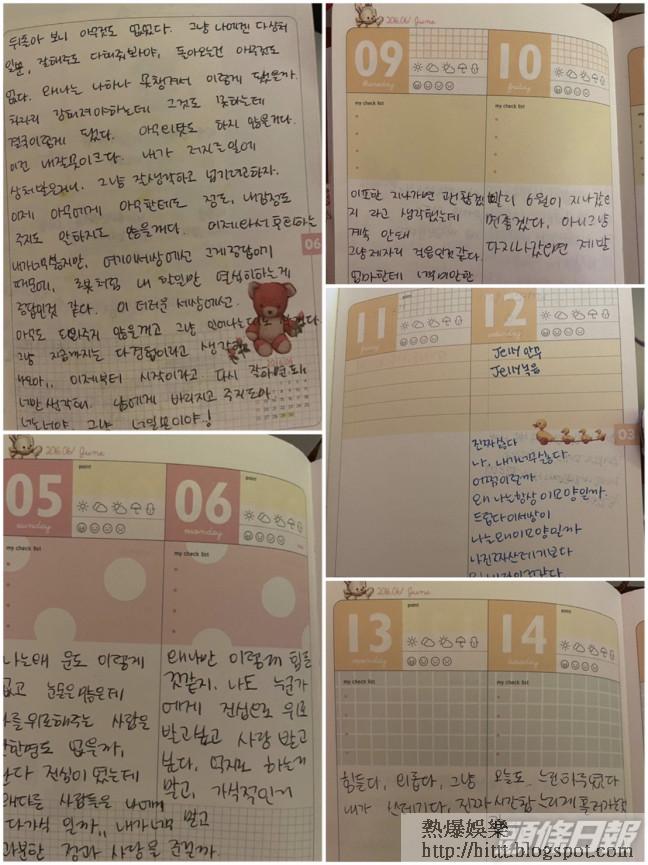 뒤돌아 보니 아무것도 없었다. 그냥 나에겐 다 상처
일뿐, 잘해주고 다해줘봐야, 돌아오는건 아무것도
없다. 왜 나는 나하나 못챙겨서 이렇게 됐을까.
차라리 강해져야하는데 그것도 못하는데
결국이렇게 됐다. 아무리맛도 하지 않을거다.
이건 내 잘못이크다. 내가 저지른일에
상처받은거니. 그냥 잘생각하고 넘기려고하자.
이제 아무에게 아무한테도 정도, 내감정도
주지도 안하지도 않을거다. 이제와서 후회하는
내가너무싫지만, 여기이세상에선 그게정답이기
때문에, 로봇처럼 내 할일만 열심히하는게
정답인것 같다. 이 더러운 세상에선.
아무도 도와주지 않을꺼고 그냥
그냥 지금까지는 다경험이라고 생각
이제부터 시작이라고 다시 잘하면 되
너만생각해. 남에게 바라지고 주지도마
너는너야. 그냥 너일뿐이야!
06
2016.06/ June
09
thursday
10
friday
my check list
my check list
이또한 지나가면 괜찮겠
지 라고 생각했는데
계속 안돼
그냥제자리 걸음인것같다.
엄마한테 너무미안한
빨리 6월이 지나갔으
면좋겠다, 아니그냥
다지나갔으면 제발
11
friday
12
saturday
Jelly 안무
Jelly녹음
03
진짜싫다
나, 내가너무싫다
어쩍이럴까
왜 나는항상 이모양일까
드럽다이세상이
나는왜이모양일까
나진짜산레기보다
2016.06/ June
05
sunday
point
06
monday
point
my check list
my check list
나는왜 운도 이렇게
없고 눈물은많은데
나를위로해주는 사람은
단한명도 없을까,
난다 진심이었는데
왜다른 사람들은 나에게
다가식 일까,, 내가너무 받고
과분한 정과 사랑을 준걸까.
왜나만 이렇게 힘들
것같지. 나도 누군가
에게 진심으로 위로
받고싶고 사랑 받고
싶다. 억지로 하는게
말고, 가식적인거
2016.06/ June
13
monday
point
14
tuesday
point
my check list
my check list
힘들다, 외롭다, 그냥
내가 쓰레기다, 진짜
오늘도 느린하루였다
시간참 느리게 흘러가한
頭條日報
熱爆娛樂
http://hittt.blogspot.com/